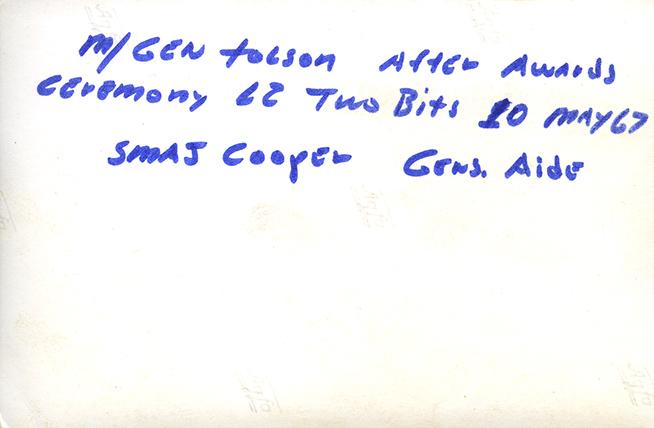 M/GEN Tolson After Awards
Ceremony LZ Two Bits 10 MAY 67
SMAJ Cooper Gens. Aide